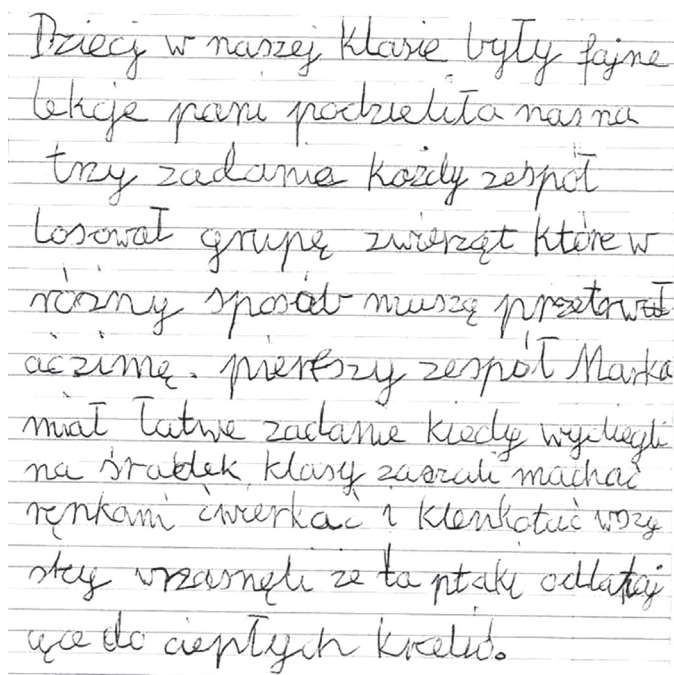 Dzieci w naszej klasie były fajne
lekcje pani podzieliła nas na
trzy zadanie każdy zespół
losował grupę zwierząt które w
różny sposób muszą przetrwał
ać zimę. pierwszy zespół Marka
miał łatwe zadanie kiedy wybiegli
na środek klasy zaczali machać
ręnkami ćwierkać i klenkotać wszy
stcy wrzasnęli że to ptaki odlataj
ące do ciepłych krajuw.